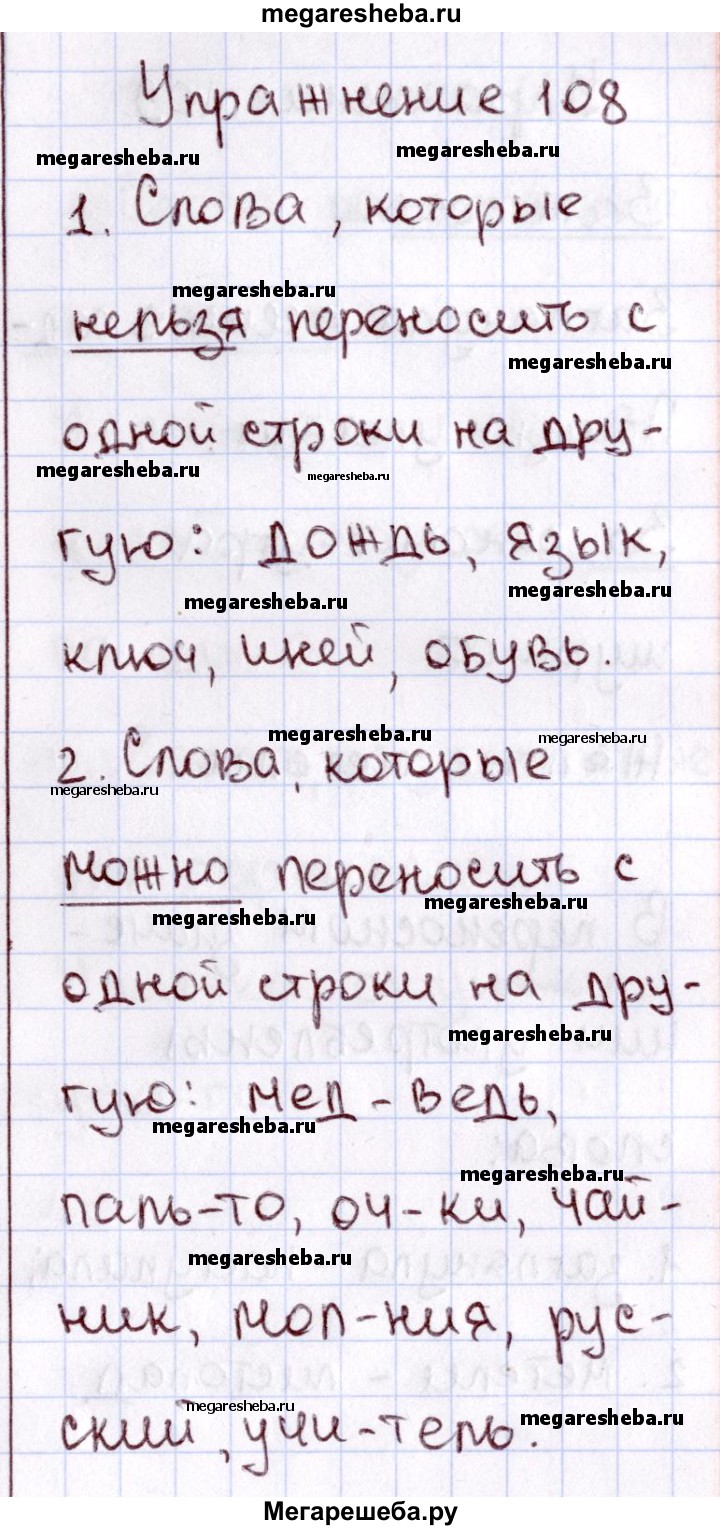 megaresheba.ru
Упражнение 108
megaresheba.ru
megaresheba.ru
1. Слова, которые
megaresheba.ru
нельзя переносить с
megaresheba.ru
одной строки на дру-
megaresheba.ru
megaresheba.ru
гую: дождь, язык,
megaresheba.ru
megaresheba.ru
ключ, иней, обувь.
megaresheba.ru
megaresheba.ru
2. Слова, которые
megaresheba.ru
можно переносить с
megaresheba.ru
megaresheba.ru
одной строки на дру-
megaresheba.ru
гую: мед-ведь,
megaresheba.ru
megaresheba.ru
паль-то, оч-ки, чай-
megaresheba.ru
ник, мол-ния, рус-
megaresheba.ru
megaresheba.ru
ский, учи-тель.
Мегарешеба.ру